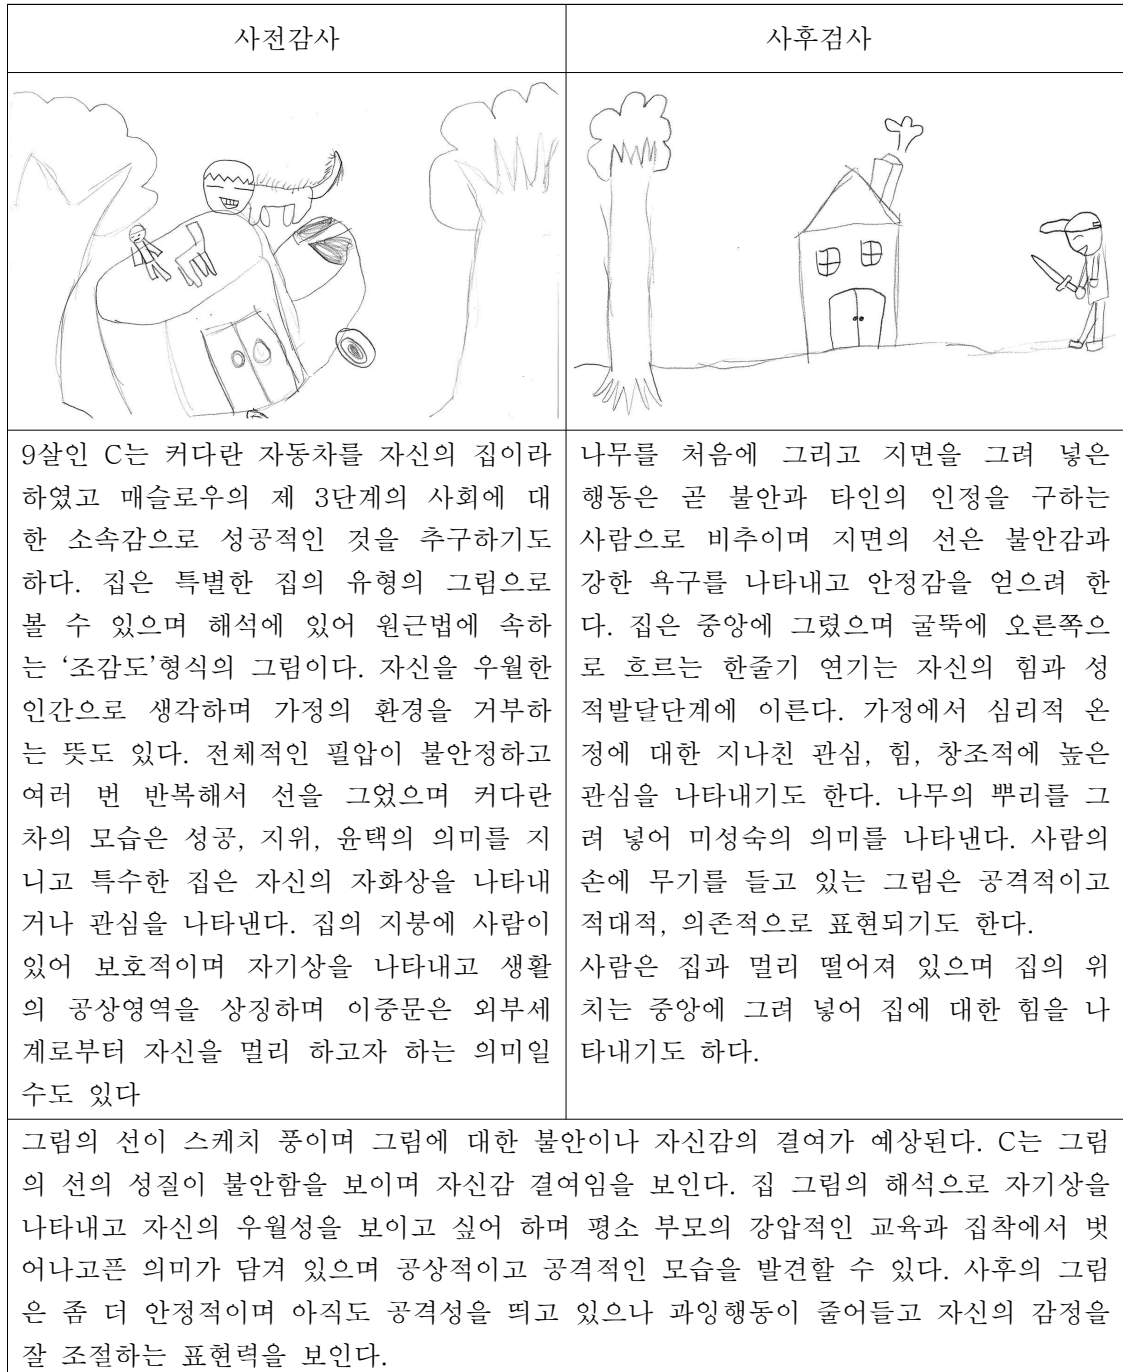 사전감사
사후검사
9살인 C는 커다란 자동차를 자신의 집이라
하였고 매슬로우의 제 3단계의 사회에 대
한 소속감으로 성공적인 것을 추구하기도
하다. 집은 특별한 집의 유형의 그림으로
볼 수 있으며 해석에 있어 원근법에 속하
는 ‘조감도’형식의 그림이다. 자신을 우월한
인간으로 생각하며 가정의 환경을 거부하
는 뜻도 있다. 전체적인 필압이 불안정하고
여러 번 반복해서 선을 그었으며 커다란
차의 모습은 성공, 지위, 윤택의 의미를 지
니고 특수한 집은 자신의 자화상을 나타내
거나 관심을 나타낸다. 집의 지붕에 사람이
있어 보호적이며 자기상을 나타내고 생활
의 공상영역을 상징하며 이중문은 외부세
계로부터 자신을 멀리 하고자 하는 의미일
수도 있다
나무를 처음에 그리고 지면을 그려 넣은
행동은 곧 불안과 타인의 인정을 구하는
사람으로 비추이며 지면의 선은 불안감과
강한 욕구를 나타내고 안정감을 얻으려 한
다. 집은 중앙에 그렸으며 굴뚝에 오른쪽으
로 흐르는 한줄기 연기는 자신의 힘과 성
적발달단계에 이른다. 가정에서 심리적 온
정에 대한 지나친 관심, 힘, 창조적에 높은
관심을 나타내기도 한다. 나무의 뿌리를 그
려 넣어 미성숙의 의미를 나타낸다. 사람의
손에 무기를 들고 있는 그림은 공격적이고
적대적, 의존적으로 표현되기도 한다.
사람은 집과 멀리 떨어져 있으며 집의 위
치는 중앙에 그려 넣어 집에 대한 힘을 나
타내기도 하다.
그림의 선이 스케치 풍이며 그림에 대한 불안이나 자신감의 결여가 예상된다. C는 그림
의 선의 성질이 불안함을 보이며 자신감 결여임을 보인다. 집 그림의 해석으로 자기상을
나타내고 자신의 우월성을 보이고 싶어 하며 평소 부모의 강압적인 교육과 집착에서 벗
어나고픈 의미가 담겨 있으며 공상적이고 공격적인 모습을 발견할 수 있다. 사후의 그림
은 좀 더 안정적이며 아직도 공격성을 띄고 있으나 과잉행동이 줄어들고 자신의 감정을
잘 조절하는 표현력을 보인다.